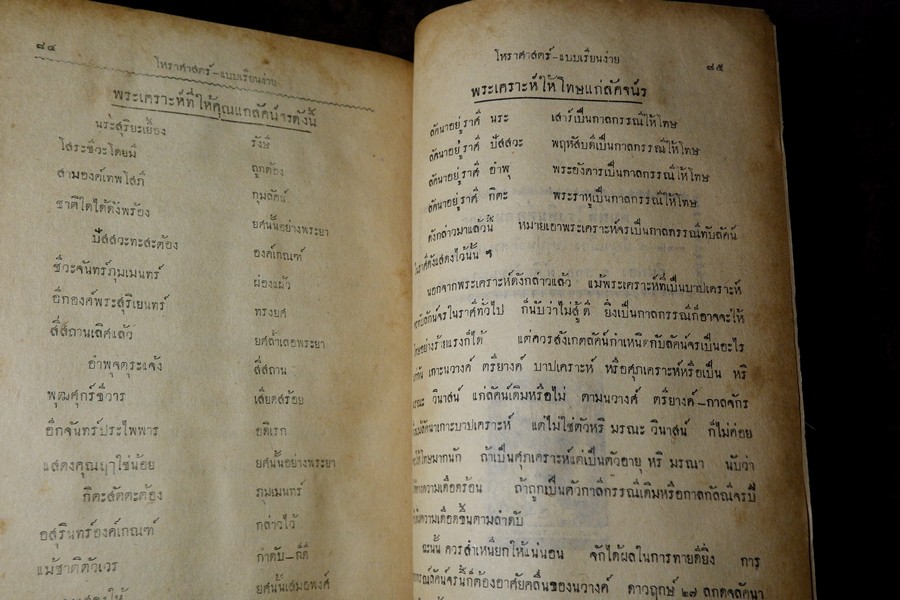 ๘๔
โหราศาสตร์-แบบเรียนง่าย
พระเคราะห์ที่ให้คุณแก่ลัคน์จรดังนี้
นระสุริยะเยื้อง รังษี
โสระชีวะโดยมี ถูกต้อง
สามองค์เทพโสภี กุมลัคน์
ชาตีใดได้ดั่งพร้อง ยศนั้นอย่างพระยา
ปัสสวะทะสะต้อง องค์เกณฑ์
ชีวะจันทร์ภุมเมนทร์ ผ่องแผ้ว
อีกองค์พระสุริเยนทร์ ทรงยศ
สี่สถานเลิศแล้ว ยศล้ำเถอพระยา
อำพุจตุระแจ้ง สี่สถาน
พุฒศุกร์ชีวาร เสียดสร้อย
อีกจันทร์ประไพพาร อดิเรก
แสดงคุณฤๅใช่น้อย ยศนั้นอย่างพระยา
กิตะสัตตะต้อง ภุมเมนทร์
อสุรินทร์องค์เกณฑ์ กล่าวไว้
แม้ชาติตัวเวร กำดับ-
ยศนั้นเสมอพงศ์
๘๕
โหราศาสตร์-แบบเรียนง่าย
พระเคราะห์ให้โทษแก่ลัคจนร
ลัคนาอยู่ราศี นระ เสาร์เป็นกาลกรรณีให้โทษ
ลัคนาอยู่ราศี ปัสสวะ พฤหัสบดีเป็นกาลกรรณีให้โทษ
ลัคนาอยู่ราศี อำพุ พระอังคารเป็นกาลกรรณีให้โทษ
ลัคนาอยู่ราศี กิตะ พระราหูเป็นกาลกรรณีให้โทษ
ดังกล่าวมาแล้วนี้ หมายเอาพระเคราะห์จรเป็นกาลกรรณีทับลัคน์
ในราศีดังแสดงไว้นั้น ๆ
นอกจากพระเคราะห์ดังกล่าวแล้ว แม้พระเคราะห์ที่เป็นบาปเคราะห์
ทับลัคน์จรในราศีทั่วไป ก็นับว่าไม่สู้ดี ยิ่งเป็นกาลกรรณีก็อาจจะให้
โทษอย่างร้ายแรงก็ได้ แต่ควรสังเกตลัคน์กำเหนิดกับลัคน์จรเป็นอะไร
กัน เกาะนวางค์ ตรียางค์ บาปเคราะห์ หรือศุภเคราะห์หรือเป็น หริ
มรณะ วินาสน์ แก่ลัคน์เดิมหรือไม่ ตามนวางค์ ตรียางค์-กาลจักร
ลัคนาเกาะบาปเคราะห์ แต่ไม่ใช่ตัวหริ มรณะ วินาสน์ ก็ไม่ค่อย
ให้โทษมากนัก ถ้าเป็นศุภเคราะห์แต่เป็นตัวอายุ หริ มรณา นับว่า
ความเดือดร้อน ถ้าถูกเป็นตัวกาลีกรรณีเดิมหรือกาลกัลณีจรปี
ความเดือดขึ้นตามลำดับ
ฉะนั้น ควรสำเหนียกให้แน่นอน จักได้ผลในการทายดียิ่ง การ
ลัคน์จรนี้ก็ต้องอาศัยคลื่นของนวางค์ ดาวฤกษ์ ๒๗